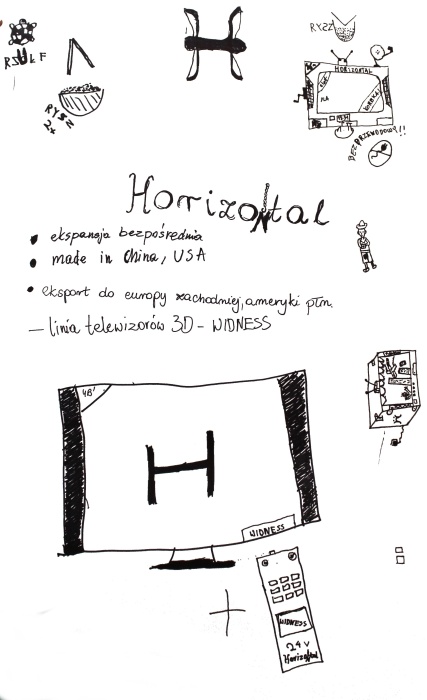 H
RYSZ
RYSZ
2x
HORIZONTAL
BEZPRZEWODOWY!!
Horrizontal
• ekspansja bezpośrednia
• made in China, USA
• eksport do europy zachodniej, ameryki płn.
— linia telewizorów 3D - WIDNESS
48'
H
WIDNESS
+
WIDNESS
24V
Horizontal